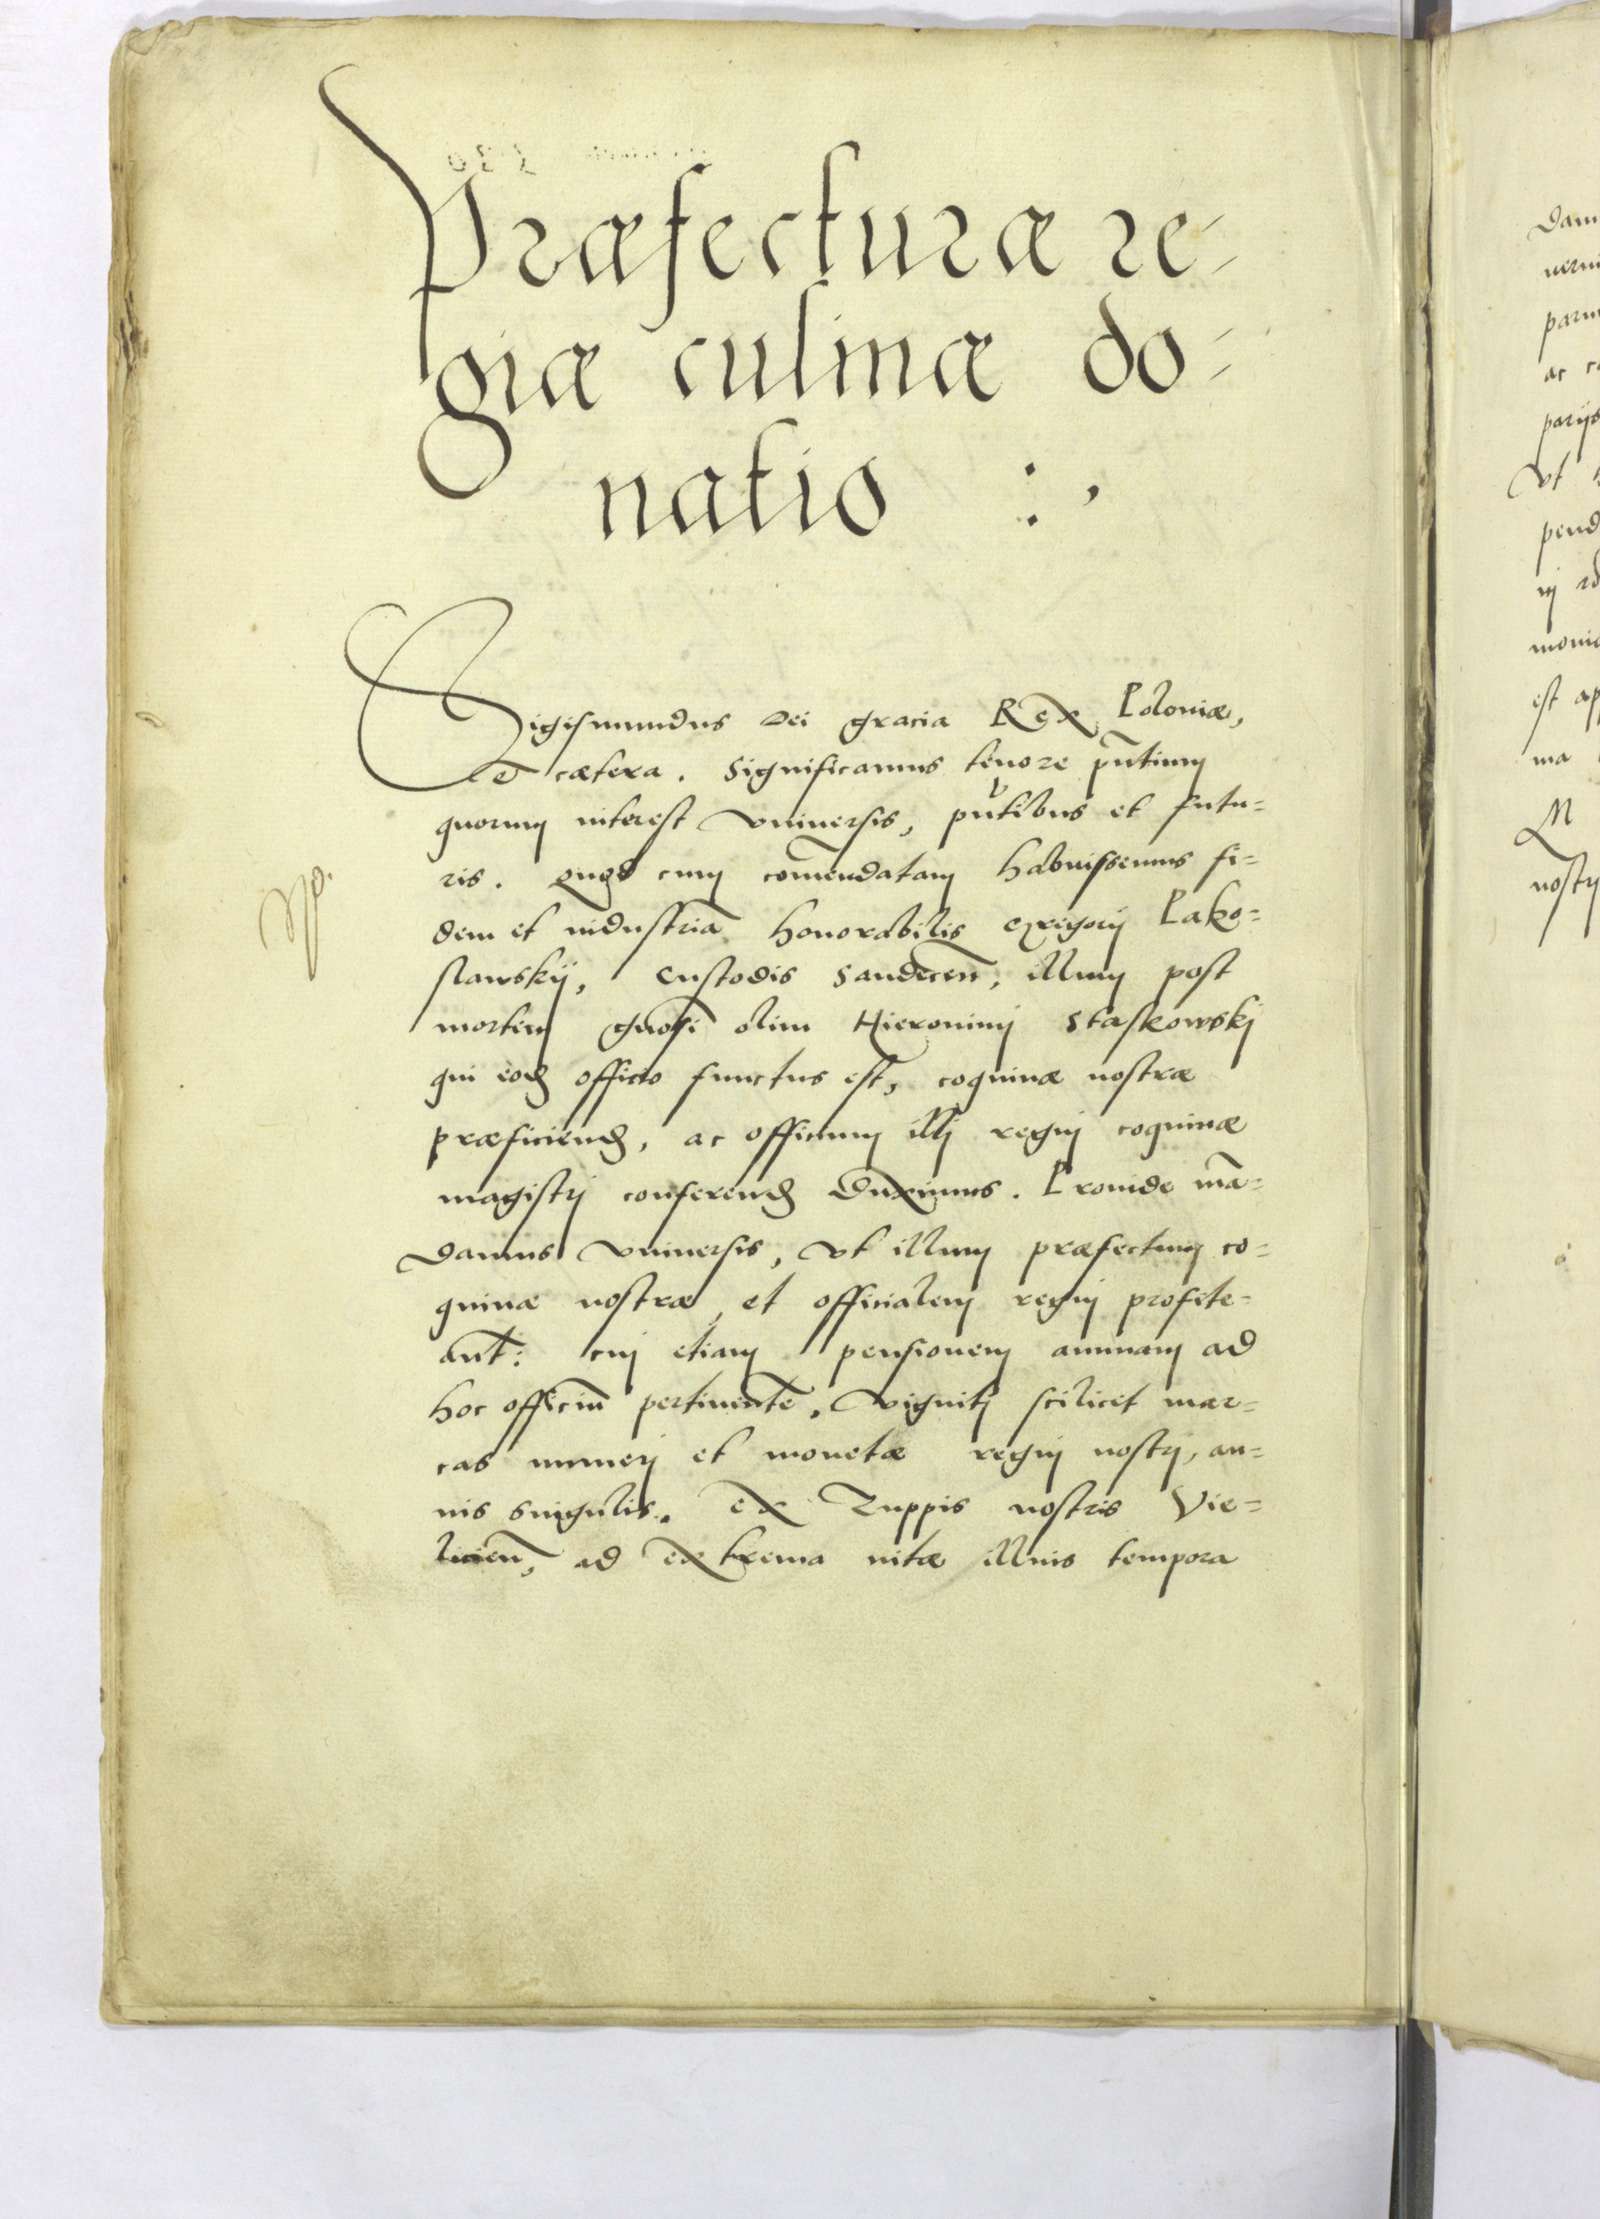 Præfecturæ re-
giæ culinæ do-
natio :,
Sigismundus Dei gracia Rex Poloniæ,
et cætera. Significamus tenore pñtium
quorum interest vniuersis, pñtibus et futu=
ris. Quod cum com̄endatam habuissemus fi=
dem et industriā honorabilis Gregorij Pako=
slawskij, Custodis Sandecen̄, illum post
mortem gñosi olim Hieronimj Staskowskj
qui eod̄ officio functus est, coquinæ nostræ
præficiend̄, ac officium illj regnj coquinæ
magistrj conferend̄ duximus. Proinde mā=
damus vniuersis, vt illum præfectum co=
quinæ nostræ, et officialem regnj profite=
ant̄: cuj etiam pensionem annuam ad
hoc officiū pertinentē, vigintj scilicet mar=
cas numerj et monetæ regnj nostrj, an=
nis singulis, ex Zuppis nostris Vie=
licien̄, ad extrema uitæ illius tempora
Dam
parijs
vt
pend
est ap
ma
M
nostrj